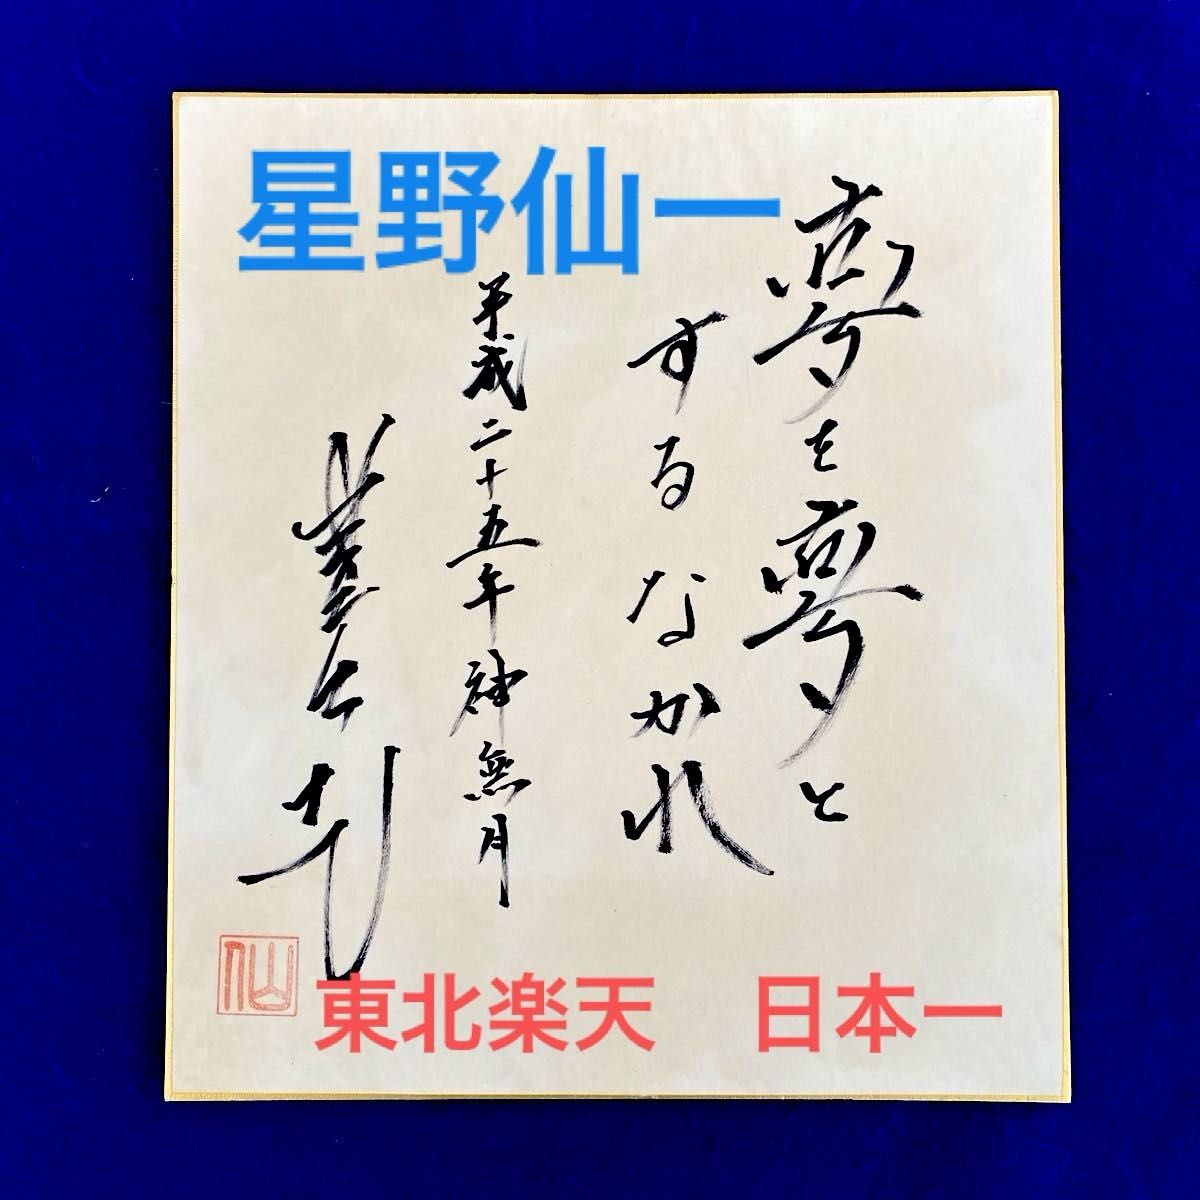 星野仙一
夢を夢と
するなかれ
平成二十五年神無月
仙
東北楽天 日本一